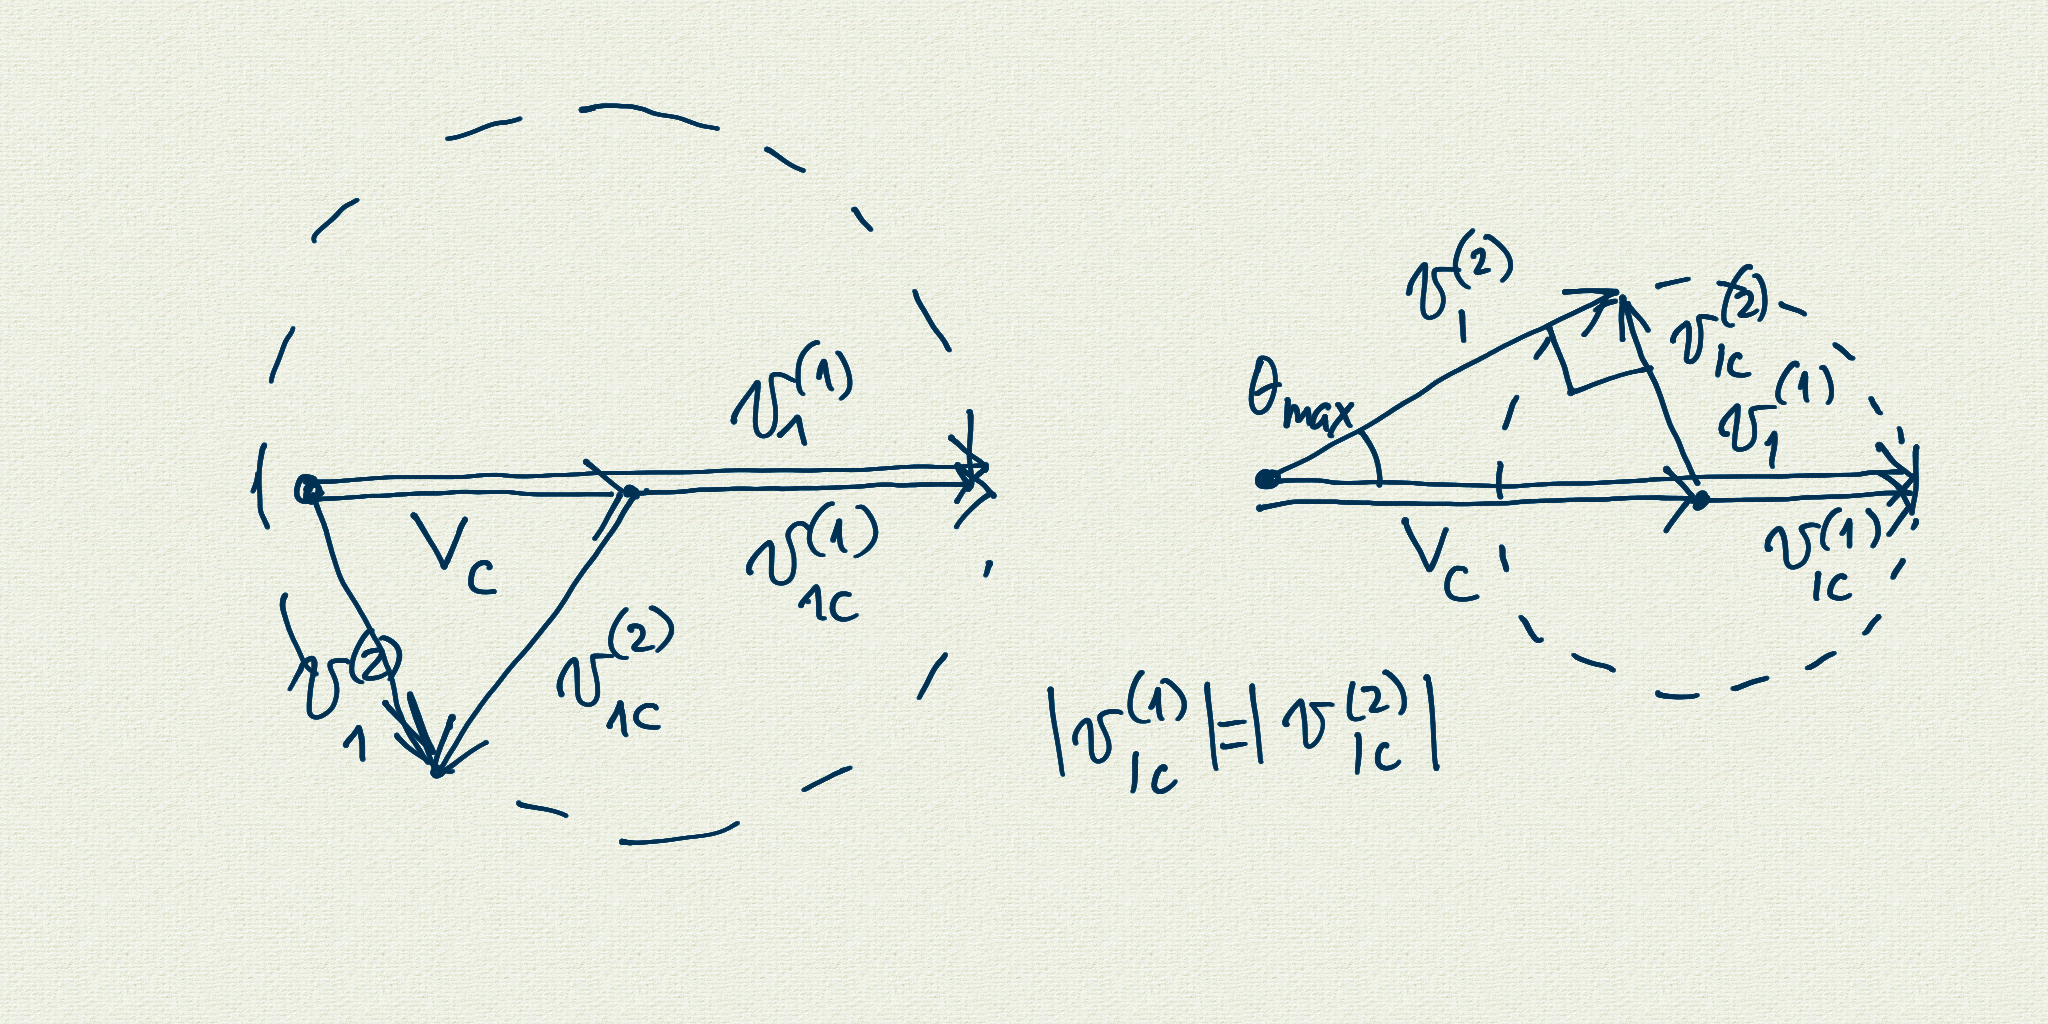 v₁⁽¹⁾
V_C
v₁C⁽¹⁾
v₁⁽²⁾
v₁C⁽²⁾
v₁⁽²⁾
v₁C⁽²⁾
θmax
v₁⁽¹⁾
V_C
v₁C⁽¹⁾
|v₁C⁽¹⁾|=|v₁C⁽²⁾|